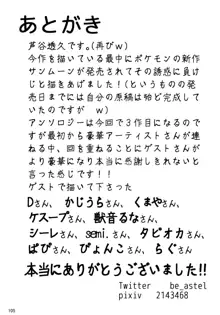 あとがき
芦谷透久です。(再びｗ)
今作を描いている最中にポケモンの新作
サンムーンが発売されてその誘惑に負け
じと描きあげました！(というものの発
売日までには自分の原稿は殆ど完成して
いたのですがｗ)
アンソロジーは今回で３作目になるのですが
最初から豪華アーティストさんが居られる
中、回を重ねるごとにゲストさんがより
豪華になり本当に感謝しきれないなと
言った感じです！！
ゲストで描いて下さった
Dさん、かじうらさん、くまやさん、
ケスープさん、獣音るなさん、
シーレさん、semi.さん、タピオカさん、
ぱぴさん、ぴょんこさん、らぐさん
本当にありがとうございました!!
Twitter be_astel
pixiv 2143468
195